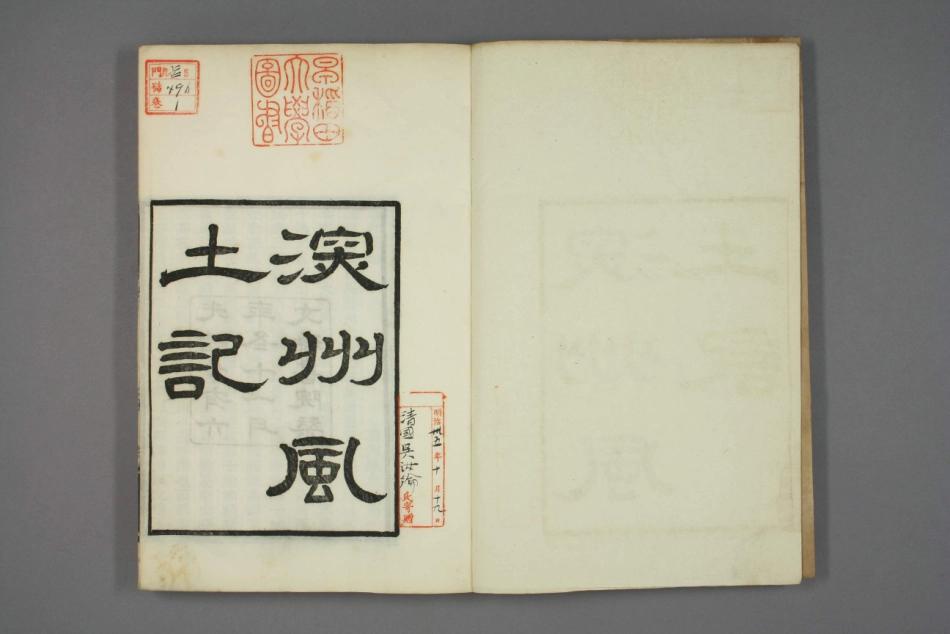 早稻田
大學
圖書
門
號 490
卷 1
深州風
土記
明治卅五年十月十九日
清國吳汝綸氏寄贈